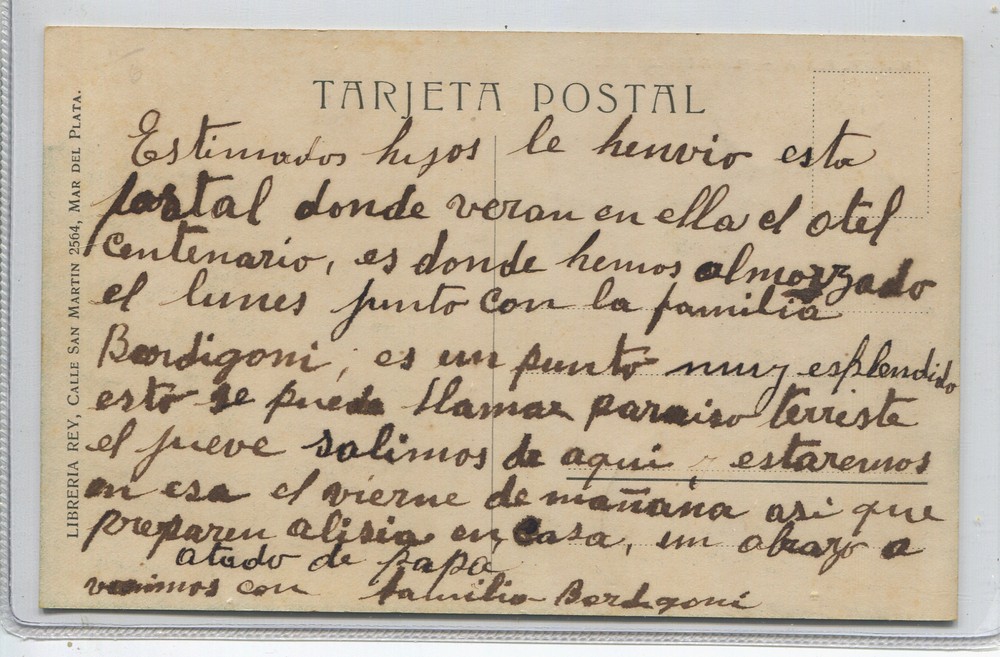 TARJETA POSTAL
LIBRERIA REY, CALLE SAN MARTIN 2564, MAR DEL PLATA.
Estimados hijos le henvio esta
postal donde veran en ella el otel
centenario, es donde hemos almorzzado
el lunes junto con la familia
Bordigoni, es un punto muy esplendido
esto se puede llamar paraiso terriste
el jueve salimos de aqui, estaremos
en esa el vierne de mañana asi que
preparen alisia en casa, un abrazo a
atodo de papa
venimos con familia Bordigoni